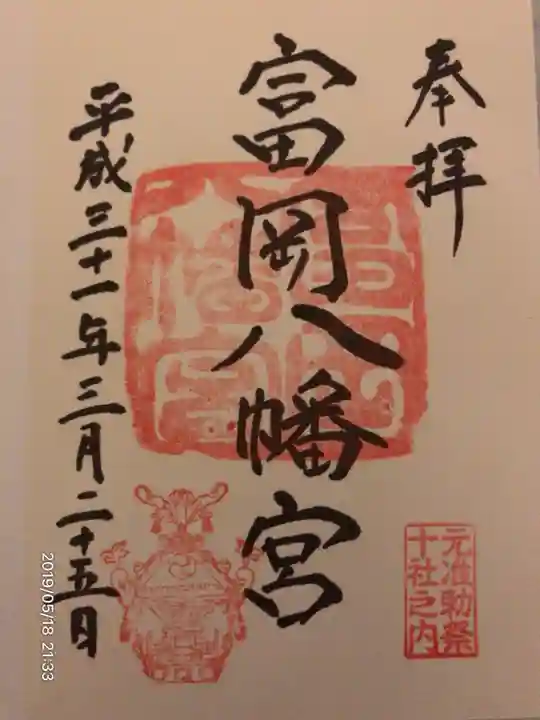 奉拝
富岡八幡宮
平成三十一年三月二十五日
元准勅祭
十社之内
2019/05/18 21:33